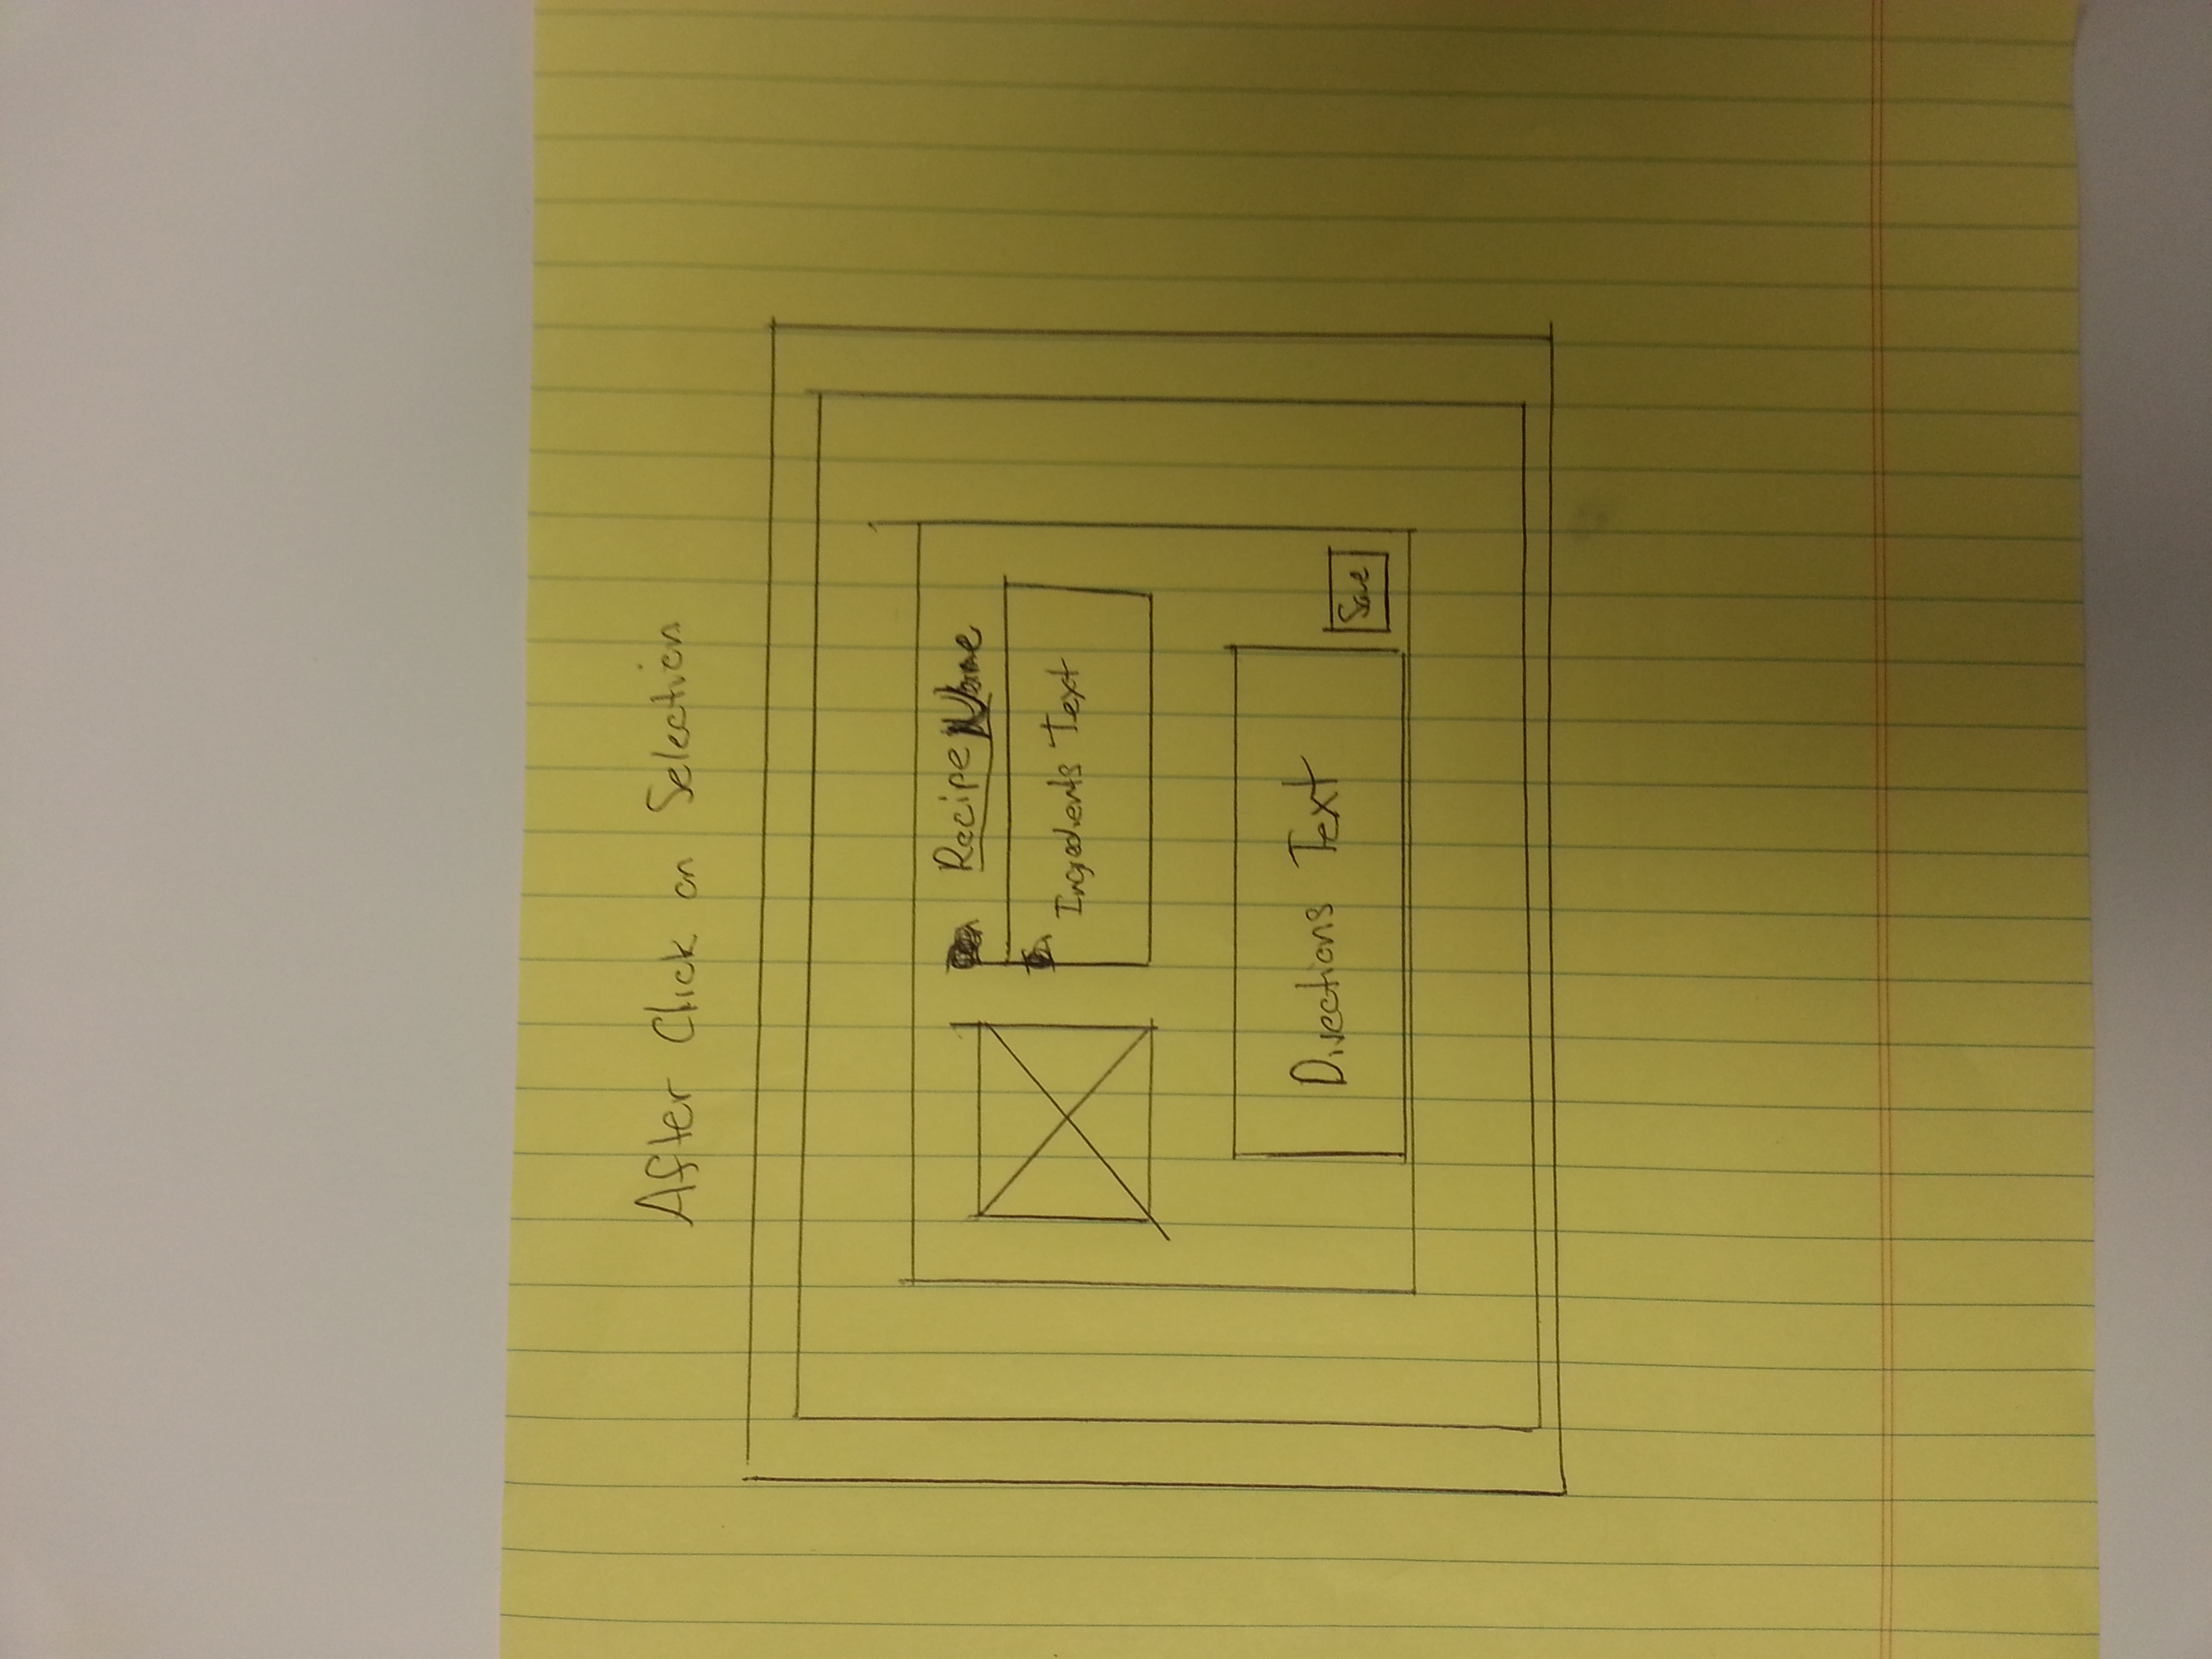 After Click on Selection
Recipe Name
Ingredients Text
Directions Text
Save